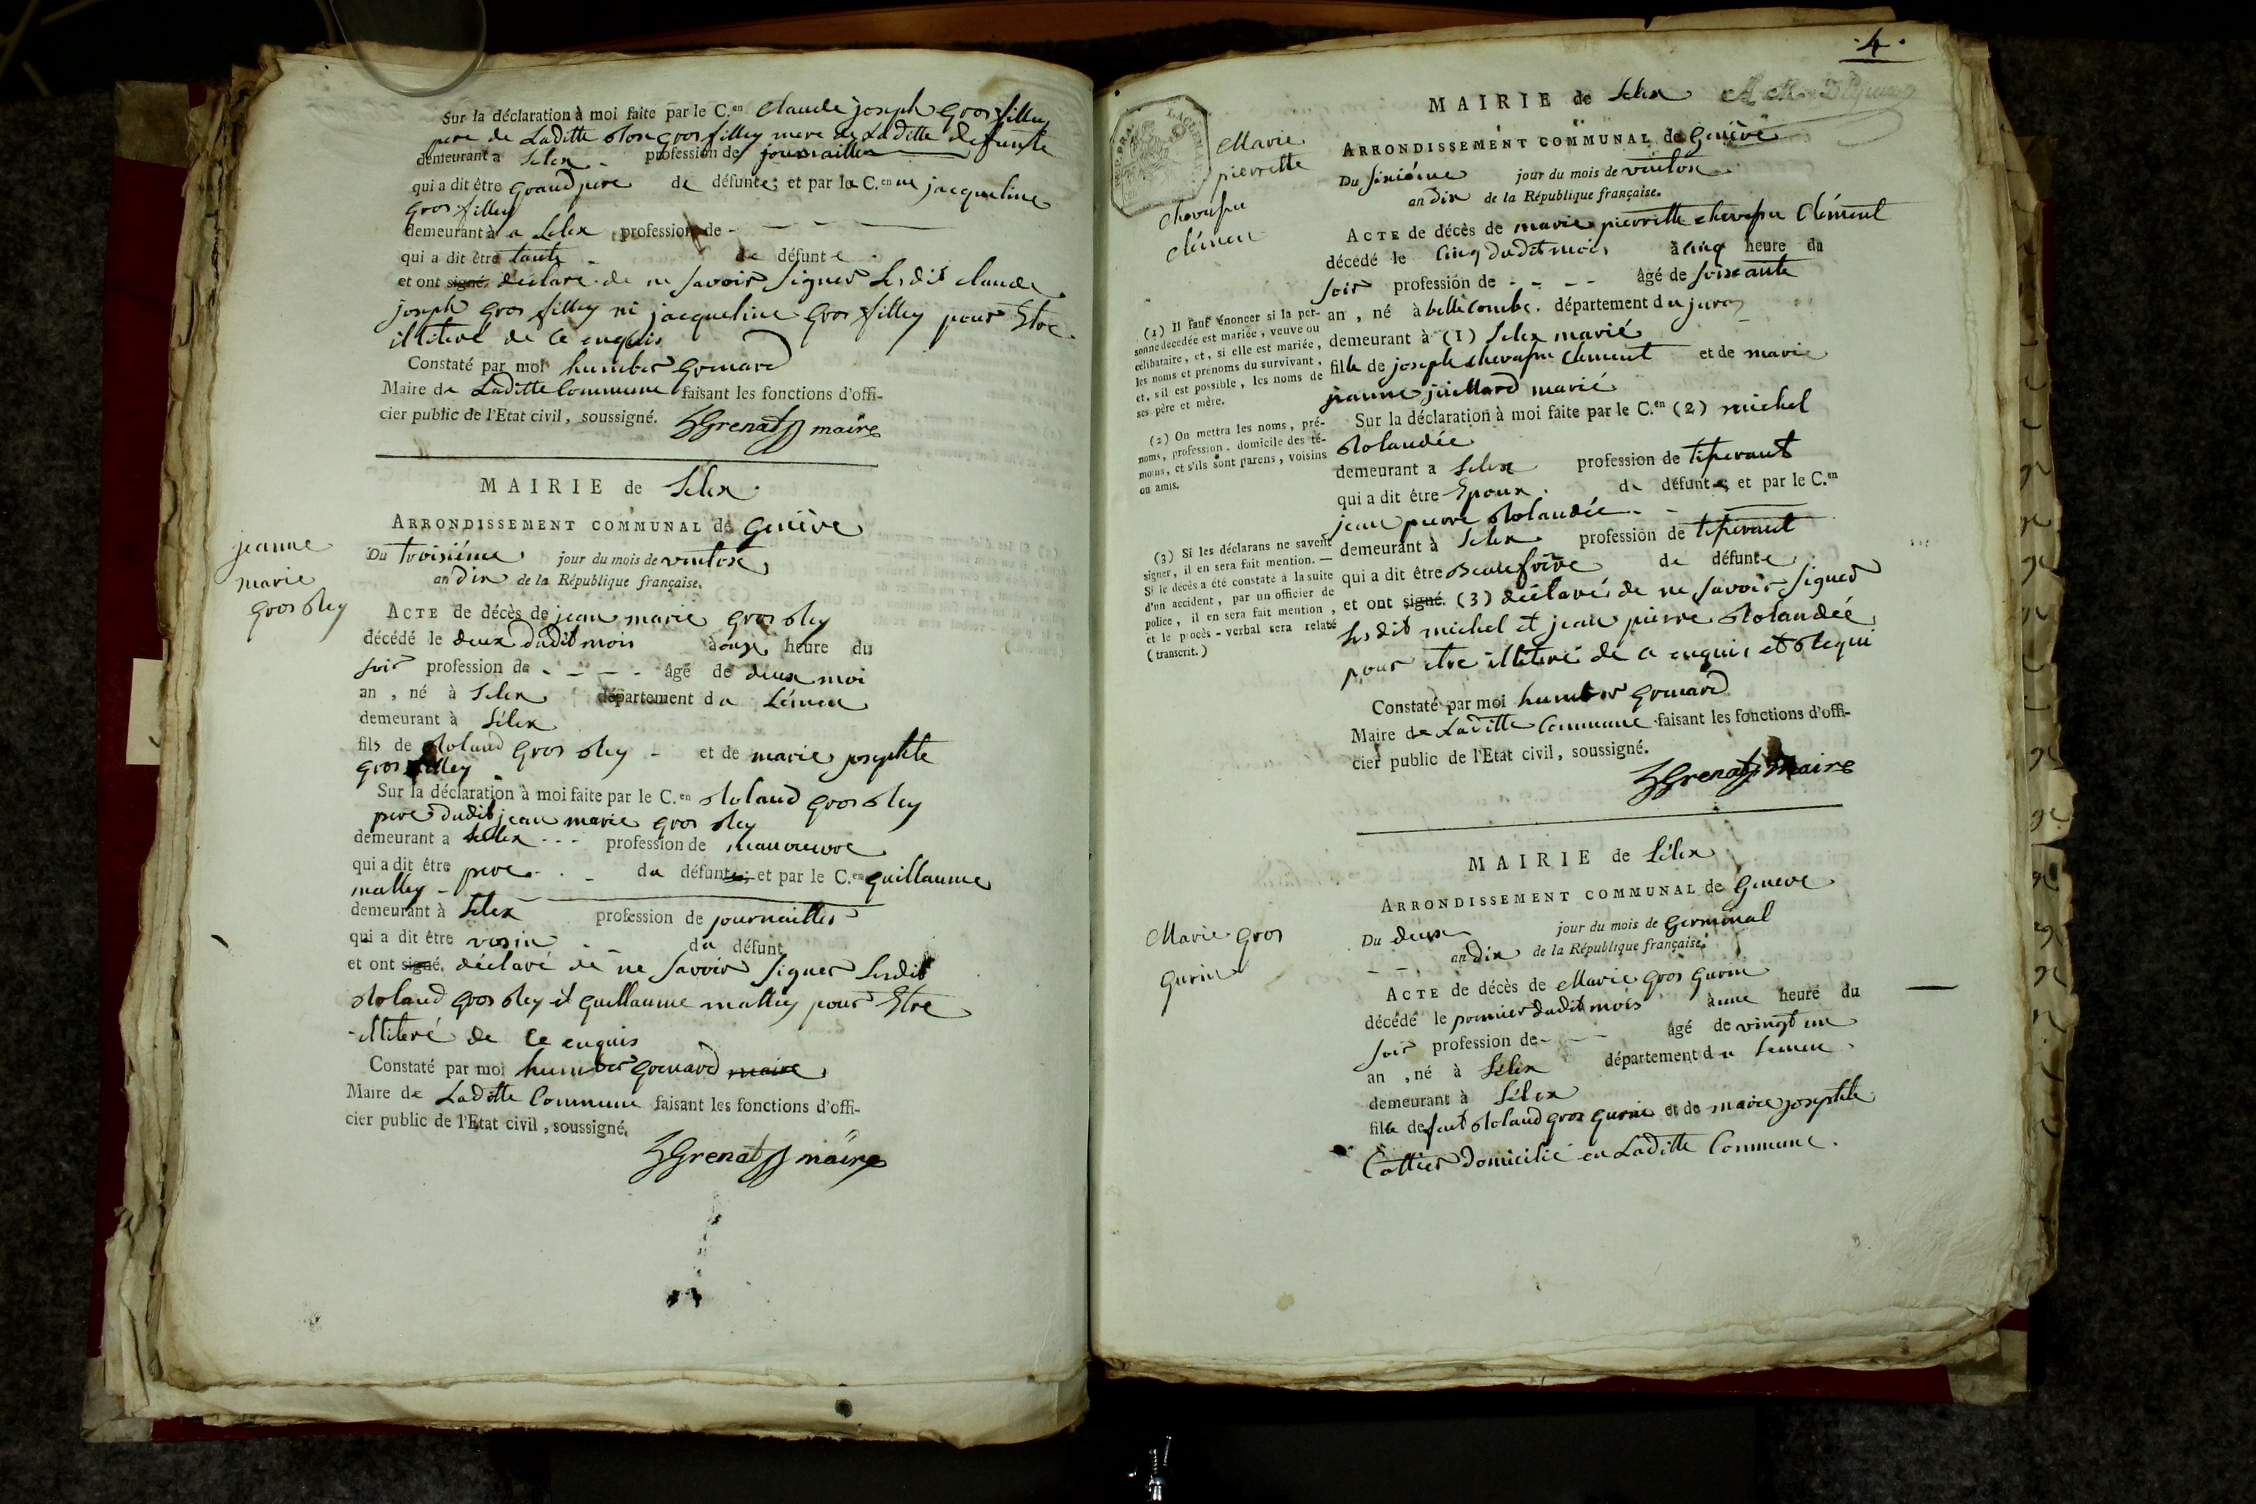 Sur la déclaration à moi faite par le C.en Claude joseph gros filley
pere de Laditte gros filley mere de Laditte defunte
demeurant a Lelex profession de journaillier
qui a dit être grand pere de défunte; et par la C.en ne jacqueline
gros filley
demeurant à a Lelex profession de - - - -
qui a dit être tante de défunte
et ont signé. declare de ne savoir signer Lesdit claude
joseph gros filley ni jacqueline gros filley pour Etre
illiteré de Ce enquis
Constaté par moi humber grenard
Maire de Laditte Commune faisant les fonctions d'offi-
cier public de l'Etat civil, soussigné. Grenard maire
MAIRIE de Lelex
ARRONDISSEMENT COMMUNAL de Genève
jeanne
marie
gros
Du troisiéme jour du mois de ventose
an Dix de la République française.
ACTE de décès de jean marie gros
décédé le deux dudit mois à onze heure du
soir profession de - - - - âgé de deux moi
an, né à Lelex département du Léman
demeurant à Lélex
fils de Roland gros et de marie josephte
gros filley
Sur la déclaration à moi faite par le C.en Roland gros
pere dudit jean marie gros
demeurant a Lelex - - - profession de manoeuvre
qui a dit être pere - - du défunte; et par le C.en guillaume
malley
demeurant à Lelex profession de journaillier
qui a dit être voisin du défunt
et ont signé. déclaré de ne savoir signer Lesdit
Roland gros et guillaume malley pour Etre
illiteré de Ce enquis
Constaté par moi humber grenard maire
Maire de Laditte Commune faisant les fonctions d'offi-
cier public de l'Etat civil, soussigné.
Grenard maire
.4.
MAIRIE de Lelex
ARRONDISSEMENT COMMUNAL de Genève
Marie
pierrette
chevassu
clémen
Du sixiéme jour du mois de ventose
an Dix de la République française.
ACTE de décès de marie pierrette chevassu Clément
décédé le Cinq dudit mois à cinq heure du
soir profession de - - - - âgé de soixante
an, né à bellecombe. département du jura
demeurant à (1) Lelex marié
fille de joseph chevassu Clement et de marie
jeanne juillard marié
(1) Il faut énoncer si la per-
sonne décédée est mariée, veuve ou
célibataire, et, si elle est mariée,
les noms et prénoms du survivant,
et, s'il est possible, les noms de
ses père et mère.
Sur la déclaration à moi faite par le C.en (2) michel
Rolandée
demeurant a Lelex profession de tisserant
qui a dit être Epoux. de défunte; et par le C.en
jean pierre Rolandée
(2) On mettra les noms, pré-
noms, profession, domicile des té-
moins, et s'ils sont parens, voisins
ou amis.
demeurant à Lelex profession de tisserant
qui a dit être Beaufrère de défunte
et ont signé. (3) déclaré de ne savoir signer
Lesdit michel et jean pierre Rolandée
pour etre illiteré de ce enquis et Requi
(3) Si les déclarans ne savent
signer, il en sera fait mention. —
Si le décès a été constaté à la suite
d'un accident, par un officier de
police, il en sera fait mention,
et le procès-verbal sera relaté
(transcrit.)
Constaté par moi humber grenard
Maire de Laditte Commune faisant les fonctions d'offi-
cier public de l'Etat civil, soussigné.
Grenard maire
MAIRIE de Lélex
ARRONDISSEMENT COMMUNAL de Geneve
Marie gros
gurin
Du deux jour du mois de germinal
an Dix de la République française.
ACTE de décès de Marie gros gurin
décédé le premier dudit mois à une heure du
soir profession de - - - âgé de vingt un
an, né à Lélex département du Leman
demeurant à Lélex
fille de feut Roland gros gurin et de marie josephte
Cottier domicilié en Laditte Commune.